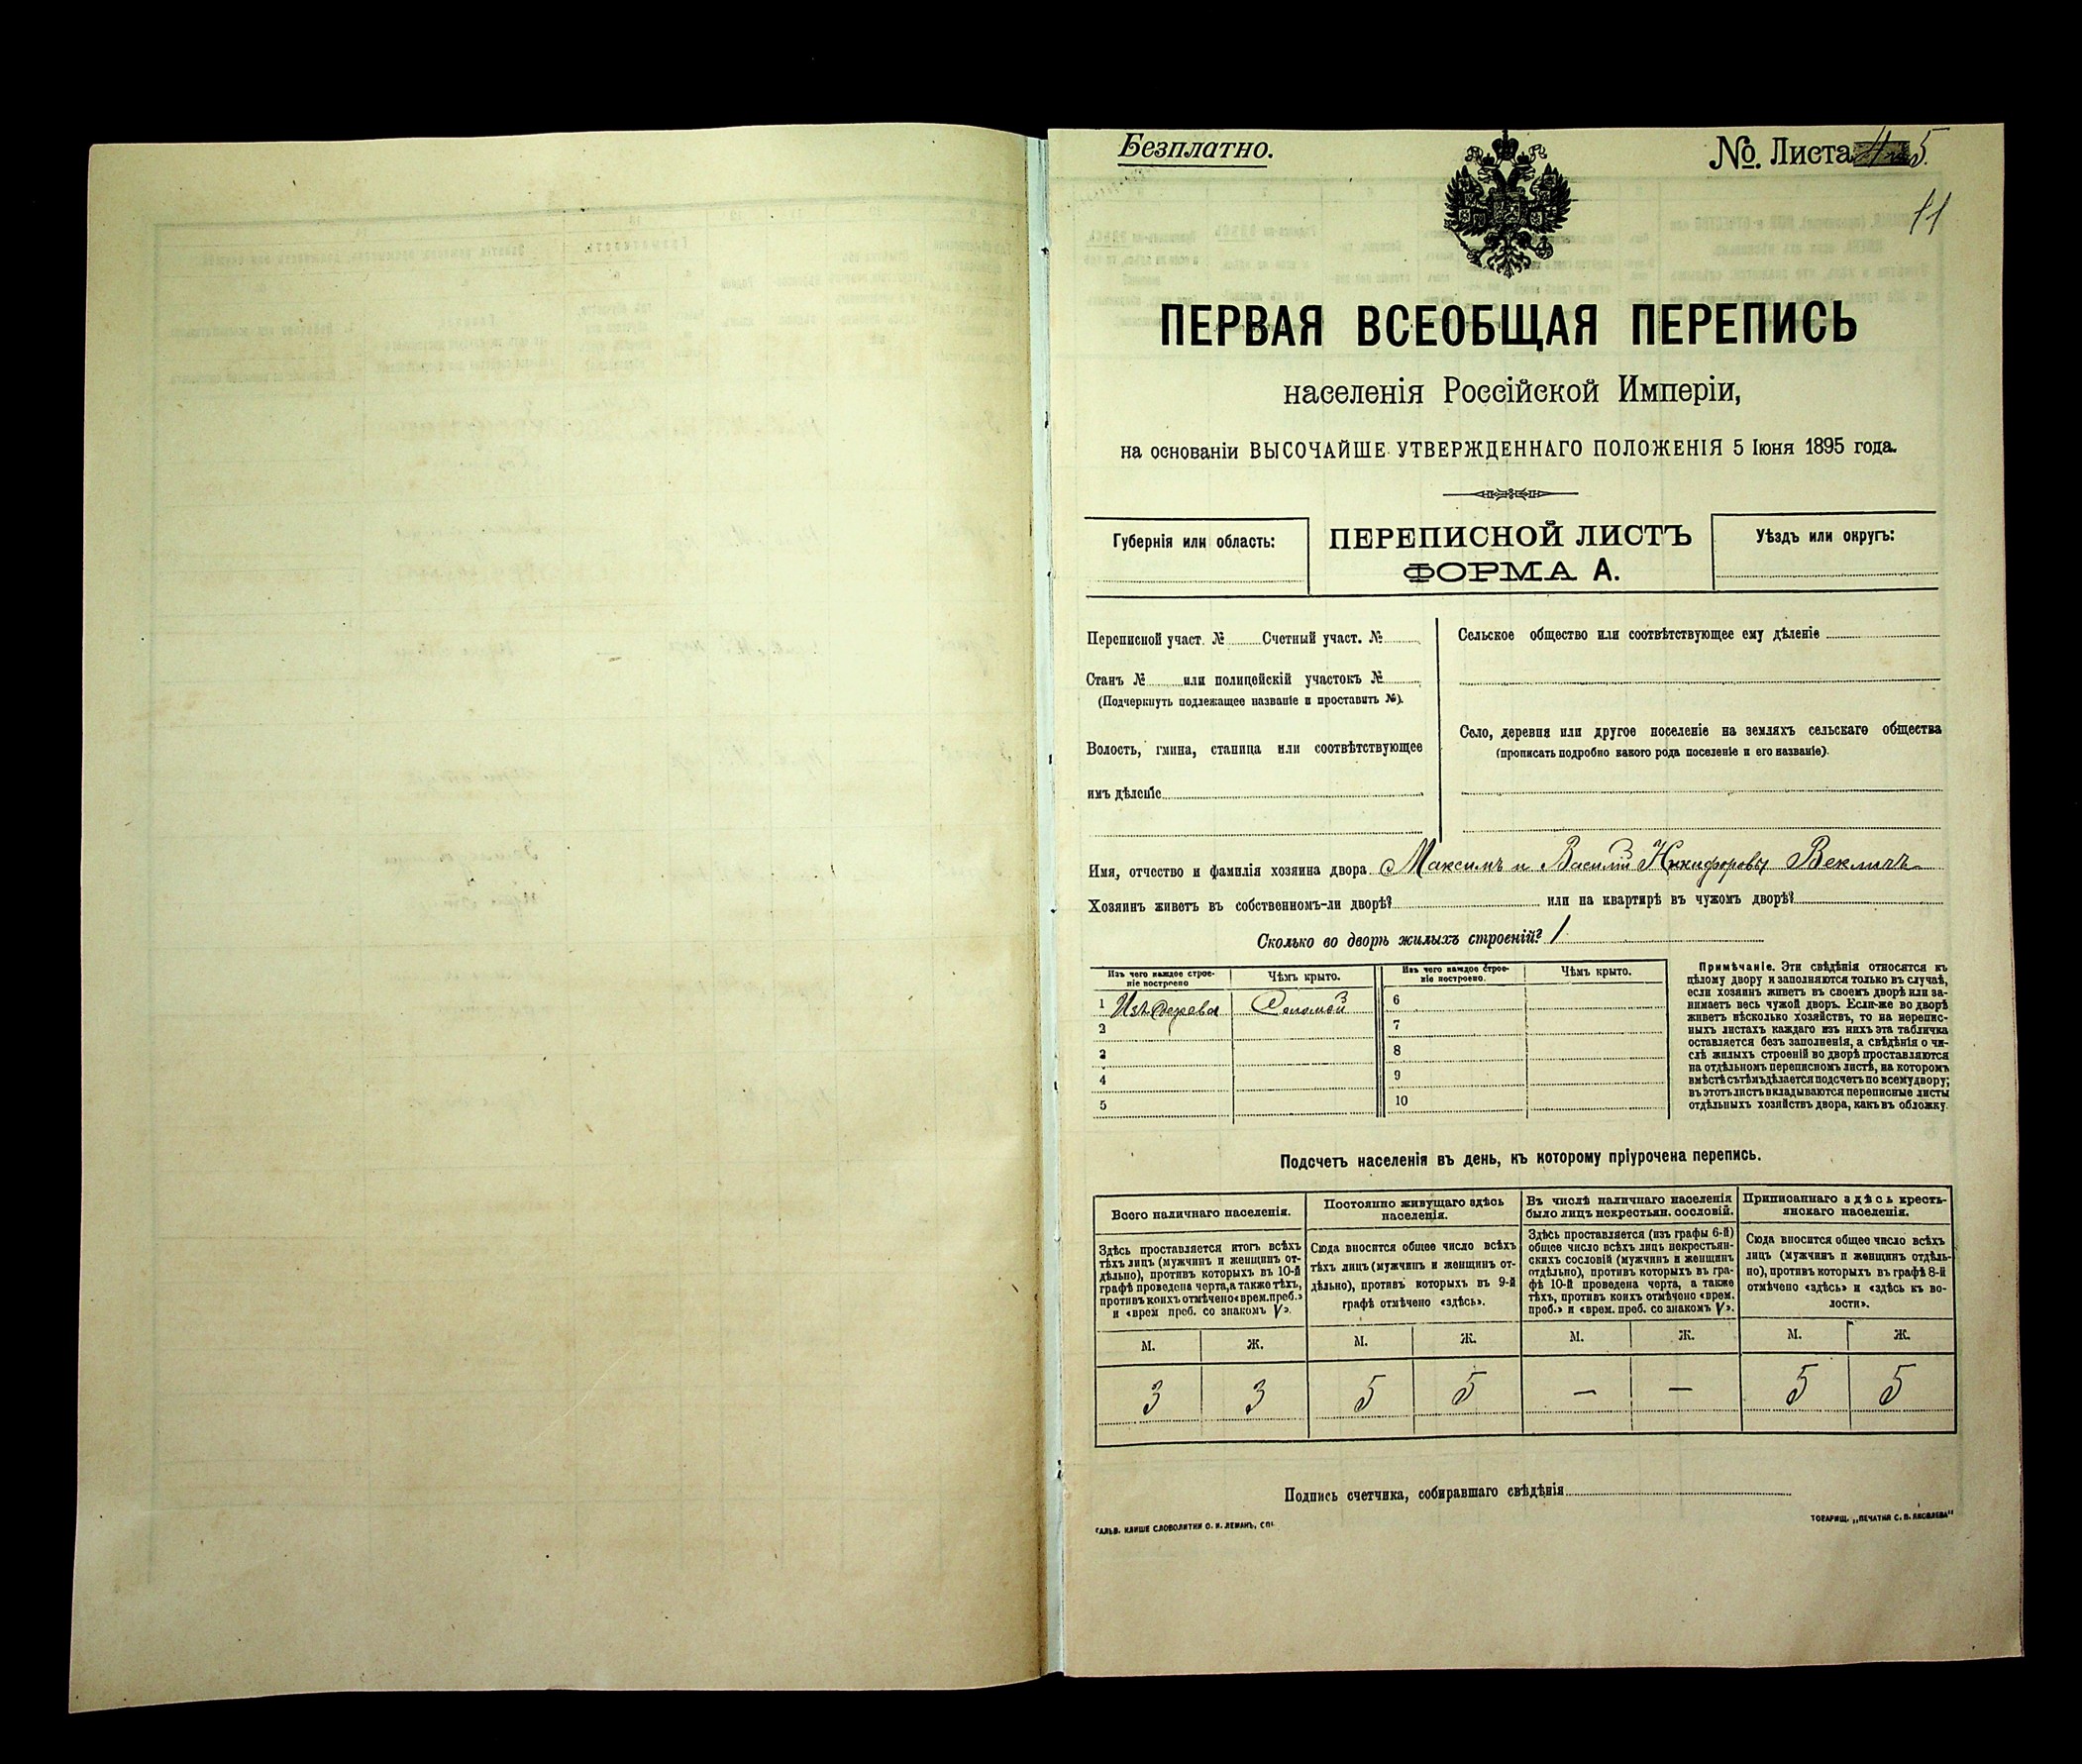 Безплатно.
№ Листа 5.
11
ПЕРВАЯ ВСЕОБЩАЯ ПЕРЕПИСЬ
населенія Россійской Имперіи,
на основаніи ВЫСОЧАЙШЕ УТВЕРЖДЕННАГО ПОЛОЖЕНІЯ 5 Іюня 1895 года.
Губернія или область:
ПЕРЕПИСНОЙ ЛИСТЪ
ФОРМА А.
Уѣздъ или округъ:
Переписной участ. № Счетный участ. №
Станъ № или полицейскій участокъ №
(Подчеркнуть подлежащее названіе и проставить №).
Волость, гмина, станица или соотвѣтствующее
имъ дѣленіе
Сельское общество или соотвѣтствующее ему дѣленіе
Село, деревня или другое поселеніе на земляхъ сельскаго общества
(прописать подробно какого рода поселеніе и его названіе).
Имя, отчество и фамилія хозяина двора Максимъ и Василій Никифоровы Векличъ
Хозяинъ живетъ въ собственномъ-ли дворѣ? или на квартирѣ въ чужомъ дворѣ?
Сколько во дворѣ жилыхъ строеній? 1
Изъ чего каждое строе-
ніе построено
Чѣмъ крыто.
1 Изъ дерева Соломой
2
3
4
5
Изъ чего каждое строе-
ніе построено.
Чѣмъ крыто.
6
7
8
9
10
Примѣчаніе. Эти свѣдѣнія относятся къ
цѣлому двору и заполняются только въ случаѣ,
если хозяинъ живетъ въ своемъ дворѣ или за-
нимаетъ весь чужой дворъ. Если-же во дворѣ
живетъ нѣсколько хозяйствъ, то на перепис-
ныхъ листахъ каждаго изъ нихъ эта табличка
оставляется безъ заполненія, а свѣдѣнія о чи-
слѣ жилыхъ строеній во дворѣ проставляются
на отдѣльномъ переписномъ листѣ, на которомъ
вмѣстѣ съ тѣмъ дѣлается подсчетъ по всему двору;
въ этотъ листъ вкладываются переписные листы
отдѣльныхъ хозяйствъ двора, какъ въ обложку.
Подсчетъ населенія въ день, къ которому пріурочена перепись.
Всего наличнаго населенія.
Здѣсь проставляется итогъ всѣхъ
тѣхъ лицъ (мужчинъ и женщинъ от-
дѣльно), противъ которыхъ въ 10-й
графѣ проведена черта, а также тѣхъ,
противъ коихъ отмѣчено «врем. преб.»
и «врем преб. со знакомъ V».
М. Ж.
3 3
Постоянно живущаго здѣсь
населенія.
Сюда вносится общее число всѣхъ
тѣхъ лицъ (мужчинъ и женщинъ от-
дѣльно), противъ которыхъ въ 9-й
графѣ отмѣчено «здѣсь».
М. Ж.
5 5
Въ числѣ наличнаго населенія
было лицъ некрестьян. сословій.
Здѣсь проставляется (изъ графы 6-й)
общее число всѣхъ лицъ некрестьян-
скихъ сословій (мужчинъ и женщинъ
отдѣльно), противъ которыхъ въ гра-
фѣ 10-й проведена черта, а также
тѣхъ, противъ коихъ отмѣчено «врем.
преб.» и «врем. преб. со знакомъ V».
М. Ж.
— —
Приписаннаго здѣсь кресть-
янскаго населенія.
Сюда вносится общее число всѣхъ
лицъ (мужчинъ и женщинъ отдѣль-
но), противъ которыхъ въ графѣ 8-й
отмѣчено «здѣсь» и «здѣсь къ во-
лости».
М. Ж.
5 5
Подпись счетчика, собиравшаго свѣдѣнія
ГАЛЬВ. КЛИШЕ СЛОВОЛИТНИ О. И. ЛЕМАНЪ, СПБ.
ТОВАРИЩ. „ПЕЧАТНЯ С. П. ЯКОВЛЕВА"